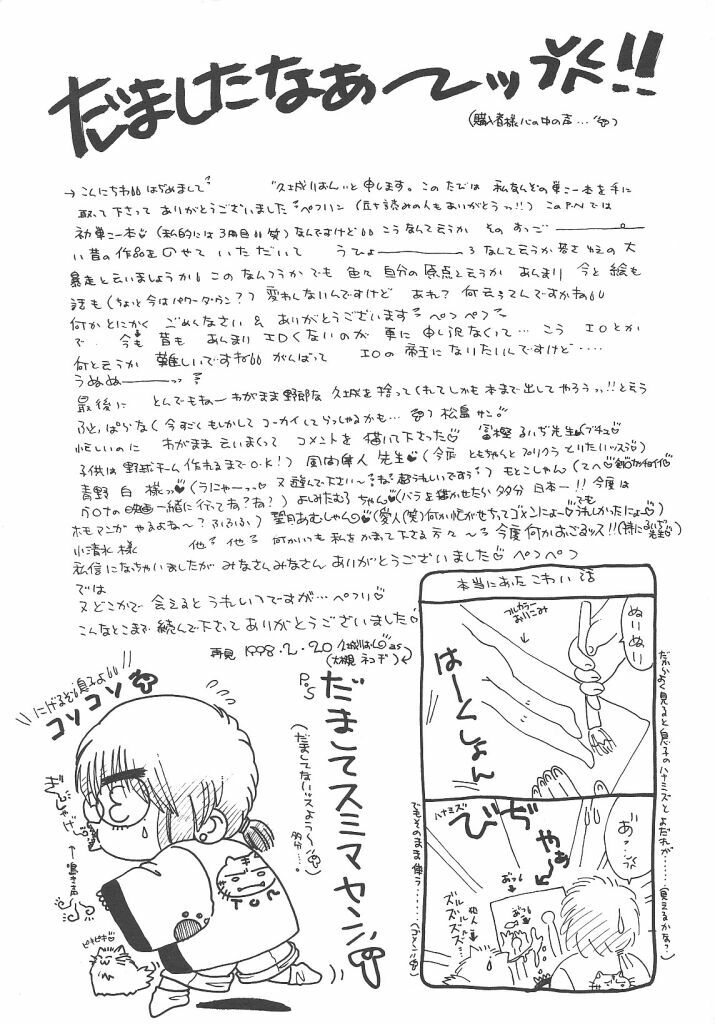 だましたなぁ〜ッ!!
(購入者様心の中の声…)
→こんにちわ はぢめまして 久城りおんと申します。このたびは 私なんぞの単こー本を手に
取って下さって ありがとうございました ペコリン(立ち読みの人もありがとうっ!!)このP.Nでは
初単こー本(私的には3冊目 笑)なんですけど こうなんて云うか そのすっご
い昔の作品をのせて いただいて うひょ ろ なんて云うか 若さゆえの大
暴走と云いましょうか このなんつうか でも 色々自分の原点と云うか あんまり 今と絵も
話も(ちょっと今はパワーダウン??)変わんないんですけど あれ?何云ってんですかね
何かとにかく ごめんなさい & ありがとうございます ペコペコ
で 今も昔も あんまり エロくないのが 更に申し訳なくって…こう エロとか
何と云うか 難しいですね がんばって エロの帝王になりたいんですけど‥‥
うぬぬーーッ
最後に とんでもねーわがまま野郎な 久城を拾ってくれてしかも本まで出してやろうっ!!と云う
ふとっぱらな(今すごくもしかしてコーカイしてらっしゃるかも…)松島サン。
忙しいのに わがまま云いまくって コメントを描いて下さった♡ 冨樫るいぢ先生♡(ブチュ♡
子供は野球チーム作れるまでO.K!)風間隼人先生♡(今度 ともちゃんとプリクラとりたいッスう)もとこしゃん(てへ♡
青野白様っ♡(うにゃーっ♡又遊んで下さい〜ね 超うれしいですぅ)よしみたむらちゃん♡(バラを描かせたら多分日本一!!今度は
映画一緒に行ってね?ね?)望月あむしゃん♡(愛人(笑)何か忙がせちってゴメンにょーでもうれしかったにょー♡)
ホモマンガやるよね〜?ふふふふ)
小清水様 他?他?何かいつも私をかまって下さる方々〜 今度何かおごるッス!!(特にるいぢ先生♡)
私信になっちゃいましたが みなさんみなさん ありがとうございました♡ ペコペコ
では
又どこかで 会えるとうれしいですが…ペコリ♡
こんなとこまで 読んで下さって ありがとうございました♡
再見 1998.2.20 久城りおん♡
(大槻ネコヂ)
P.S
だましてスミマセン
(だましてないッスよう〜 多分‥‥。)
にげるぞ息子よ
コソコソ
←鳴き声
ピキピキ
TOM
本当にあった こわい話
フルカラー
おりこみ
ぬりぬり
はーくしょん
だからよく見ると息子のハナミズとよだれが‥‥‥(見えるかな?)
ハナミズ
びぢゃあ
あ?…
おつゆ
おつゆ
犯人
ズルズルズルズル…
でもそのまま使う‥‥‥(ゴメン)